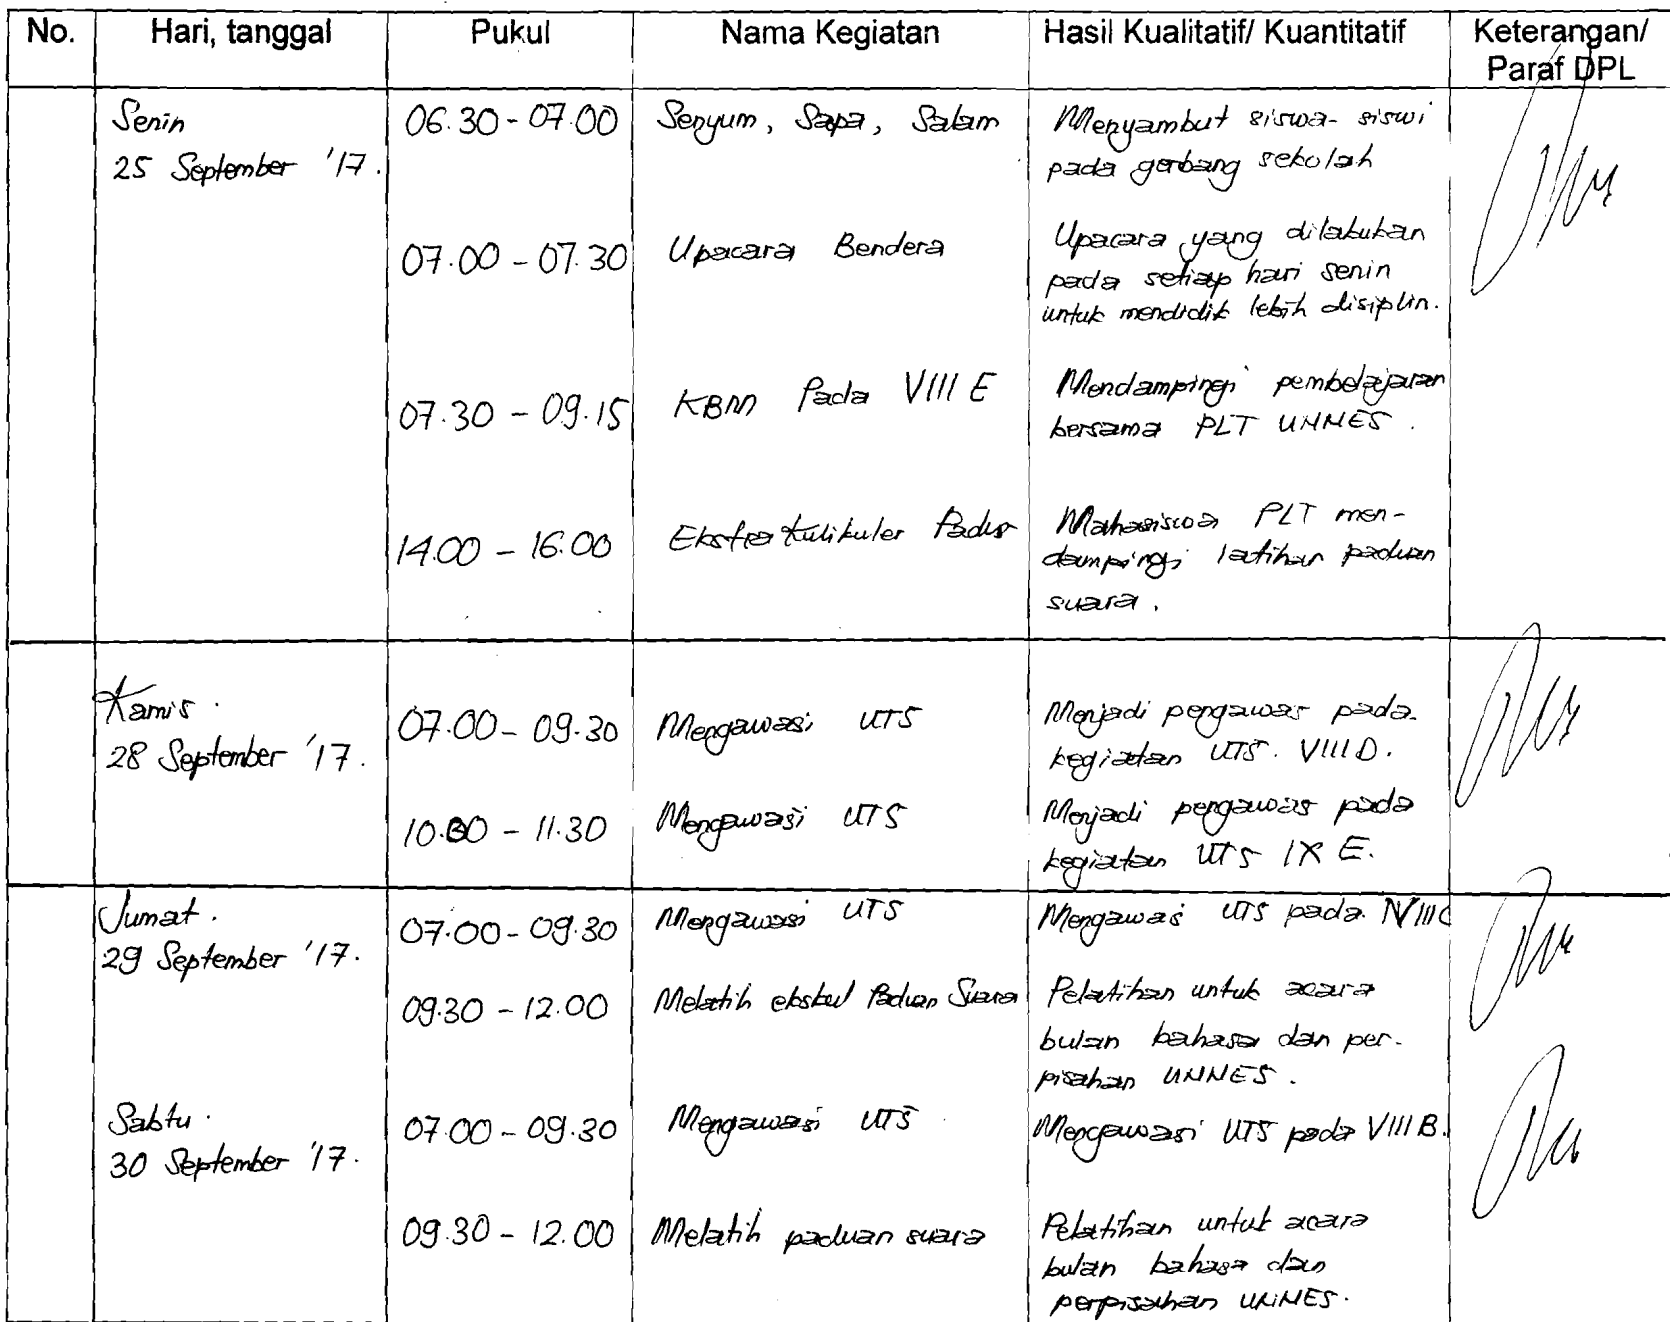 No. Hari, tanggal Pukul Nama Kegiatan Hasil Kualitatif/ Kuantitatif Keterangan/
Paraf DPL
Senin 06.30 - 07.00 Senyum, Sapa, Salam Menyambut siswa - siswi
25 September '17. pada gerbang sekolah
07.00 - 07.30 Upacara Bendera Upacara yang dilakukan
pada setiap hari senin
untuk mendidik lebih disiplin.
07.30 - 09.15 KBM Pada VIII E Mendampingi pembelajaran
bersama PLT UNNES.
14.00 - 16.00 Ekstra Kulikuler Padus Mahasiswa PLT men-
dampingi latihan paduan
suara.
Kamis. 07.00 - 09.30 Mengawasi UTS Menjadi pengawas pada
28 September '17. kegiatan UTS. VIII D.
10.00 - 11.30 Mengawasi UTS Menjadi pengawas pada
kegiatan UTS IX E.
Jumat. 07.00 - 09.30 Mengawasi UTS Mengawas UTS pada VIII C
29 September '17.
09.30 - 12.00 Melatih ekskul Paduan Suara Pelatihan untuk acara
bulan bahasa dan per-
pisahan UNNES.
Sabtu. 07.00 - 09.30 Mengawasi UTS Mengawasi UTS pada VIII B.
30 September '17.
09.30 - 12.00 Melatih paduan suara Pelatihan untuk acara
bulan bahasa dan
perpisahan UNNES.